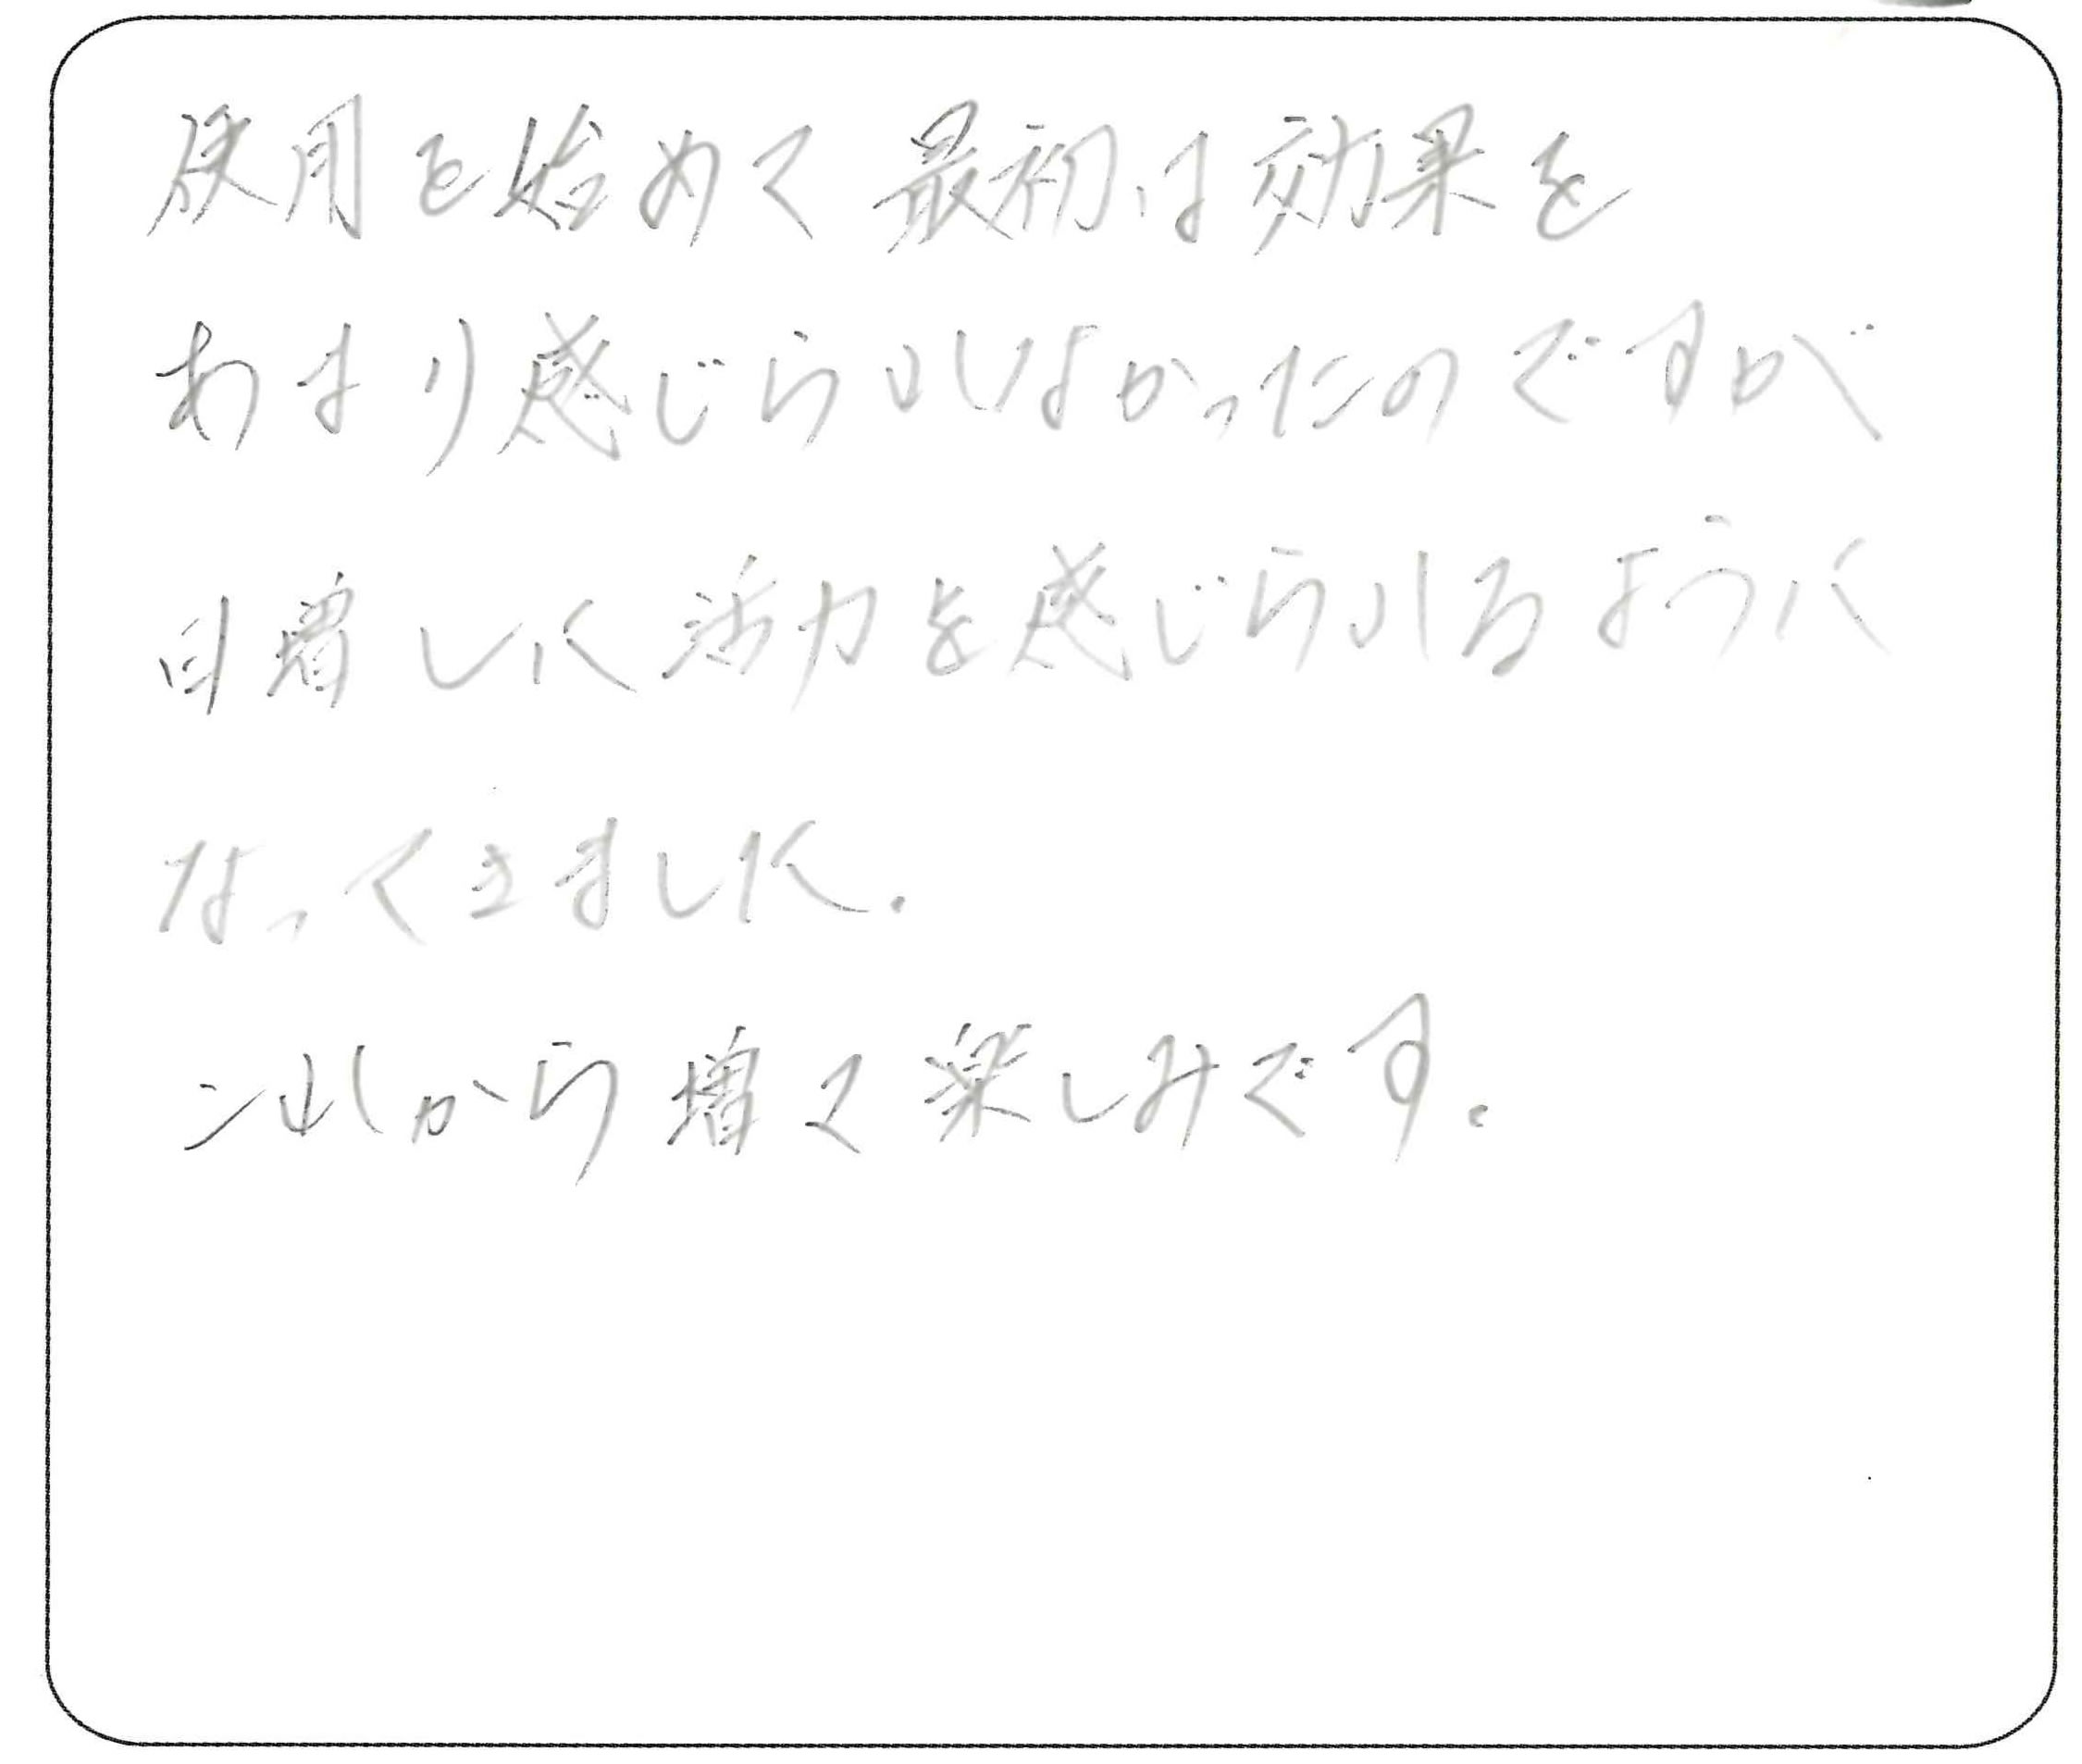 使用を始めて最初は効果を
あまり感じられなかったのですが
日増しに活力を感じられるように
なってきました.
これから増々楽しみです.